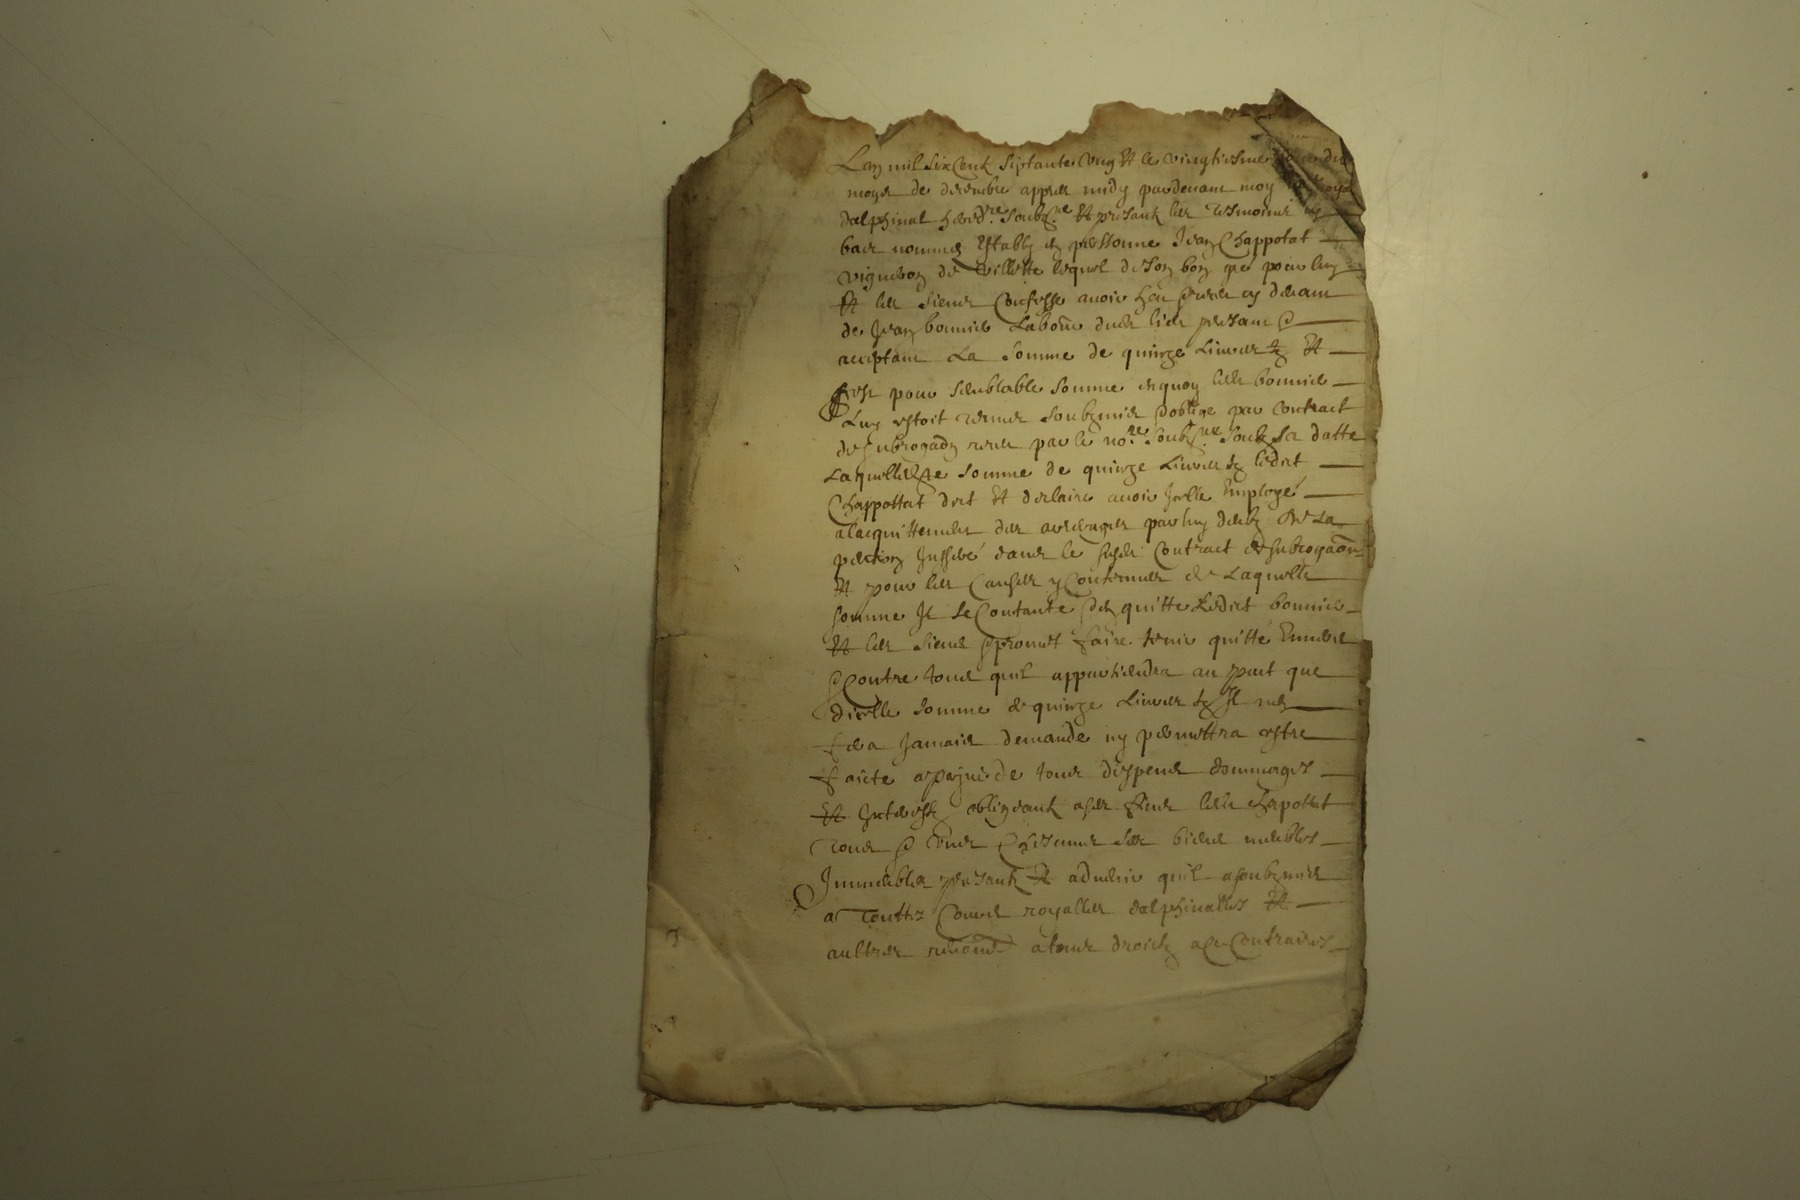 Lan mil six centz septante ung et le vingtiesme jour du
moys de decembre appres midy pardevant moy royal
dalphinal hered.re soubz.ne et presantz les tesmoins
bas nommes estably en personne Jean Chappotat
vigneron de Villette lequel de son bon gré pour luy
et les siens confesse avoir heu
de Jean bonnier labour presant &
acceptant la somme de quinze livres tz et
C'est pour semblable somme enquoy led. bonnier
luy estoit tenus soubzmis & oblige par contract
de subrogaon receu par le no.re soubz.ne soubz sa datte
laquelle somme de quinze livres tz ledict
Chappottat dict et declaire avoir icelle employé
alacquittement des arrerages par luy deubz de la
pention inseré dans le contract de subrogaon
et pour les causes y contenues de laquelle
somme il se contante & en quitte ledict bonnier
et les siens & promet faire tenir quitte envers
& contre tous quil appartiendra au pact que
dicelle somme de quinze livres tz il nen
sera jamais demande ny permettra estre
faicte a peyne de tous despens dommages
et interestz obligeant a ces fins led. Chapottat
tous & ses biens meubles
immeubles presantz et advenir quil a soubzmis
a touttes cours royalles dalphinalles et
aultres a tous droictz a ce contraires